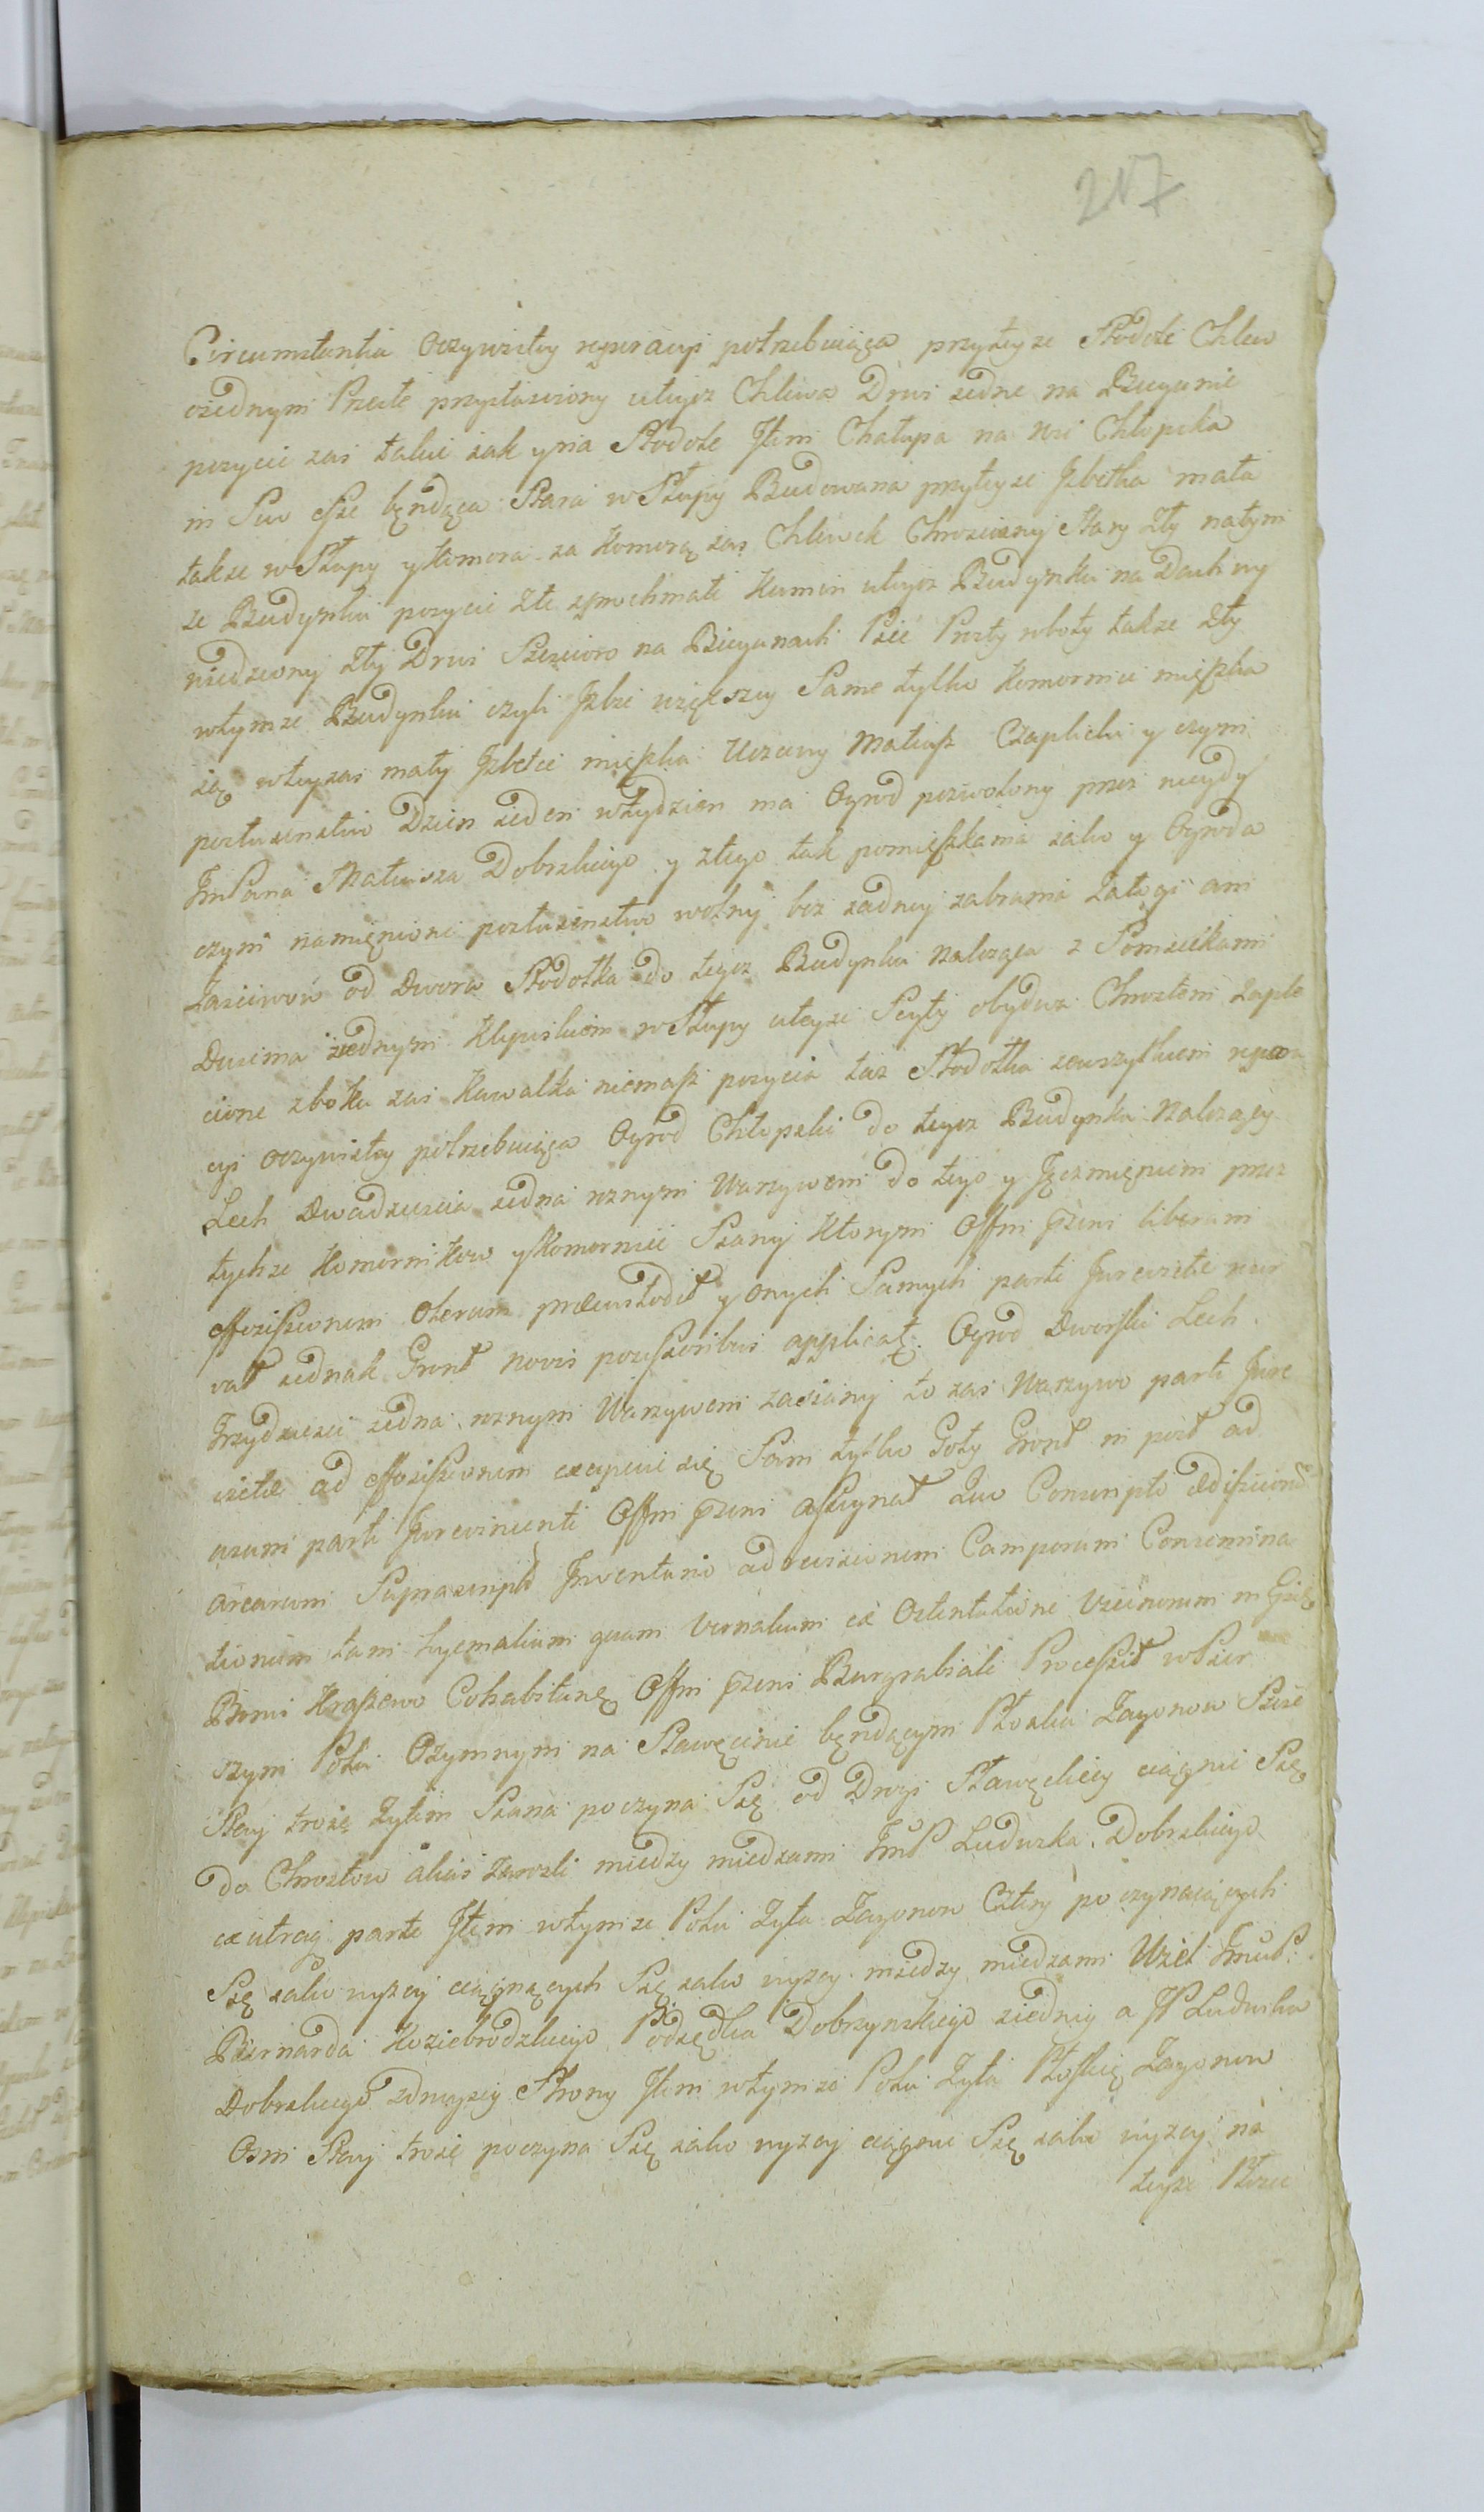 217
Circumstantia Oczywistey reperacyi potrzebuiąca przyteyze Stodole Chlew
oiednym Przęśle przystawiony utegoz Chlewa Drzwi iedne na Biegunie
poszycie zas takie iak yna Stodole Item Chałupa na Wsi Chłopska
in Suo esse będąca Stara w Słupy Budowana przyteyze Izbetka mała
takze w Słupy y Komora za Komorą zas Chliwek Chrosciany Stary Zły natym
ze Budynku poszycie Złe spruchniałe Komin utegoz Budynku na Dach wy
wiedziony Zły Drzwi Szescioro na Biegunach Piec Prosty roboty takze Zły
wtymze Budynku czyli Izbie większey Same tylko Komornice mięszka
ią wteyzas małey Izbetce mięszka Uczciwy Matiasz Czaplicki y czyni
posłuszenstwo Dzien ieden wtydzien ma Ogrod pozwolony przez niegdy
ImPana Mateusza Dobrskiego y ztego tak pomięszkania iako y Ogroda
czyni namięnione posłuszenstwo wolny bez zadney zabrania Załogi ani
Zasiewow od Dwora Stodołka do tegoz Budynku Naleząca z Somsiekami
Dwiema iednym Klepiskiem w Słupy uteyze Scyty obydwa Chrostem zaple
cione zboku zas Kawałka niemasz poszycia taz Stodołka zewszytkiem repera
cyi oczywistey potrzebuiąca Ogrod Chłopski do tegoz Budynku Nalezący
Lech Dwadziescia iedna roznym Warzywem do tego y Jęczmięniem przez
tychze Komornikow y Komornice Siany Ktorym Offm prsens liberam
effossionem Olerum præcustodit y onych Samych parti Jurevictæ reser
vat iednak Gront novis possessoribus applicat. Ogrod Dworski Lech
Trzydziesci iedna roznym Warzywem zasiany to zas Warzywo parti Jure
victæ ad effossionem excypuie się Sam tylko Goły Gront in post ad
usum parti Jurevincenti Offm prsens assignat Quo Conscripto ædificiorum
arearum Suprascripto Inventario ad revisionem Camporum Consemina
tionum tam hyemalium quam Vernalium ex Ostentatione Vicinorum in
Bonis Kraszewo Cohabitan. Offm prsens Burgrabiale Processit wPier
szym Polu Ozymnym na Sławęcinie będącym Płoska Zagonow Szesc
Staj troie Zytem Siana poczyna Się od Drogi Sławęckiey ciągnie Się
do Chrostow alias Zarosli miedzy miedzami ImP Ludwika Dobrskiego
ex utraq parte Item wtymze Polu Zyta Zagonow Cztery poczynaiących
Się iako wyzey ciągnących Się iako wyzey miedzy miedzami Wiel ImuP
Biernarda Koziebrodzkiego Podsędka Dobrzynskiego ziedney a JP Ludwika
Dobrskiego zdrugiey Strony Item wtymze Polu Zyta Płoskie Zagonow
Osm Staj troie poczyna Się iako wyzey ciągnie Się iako wyzey na
teyze Płosce